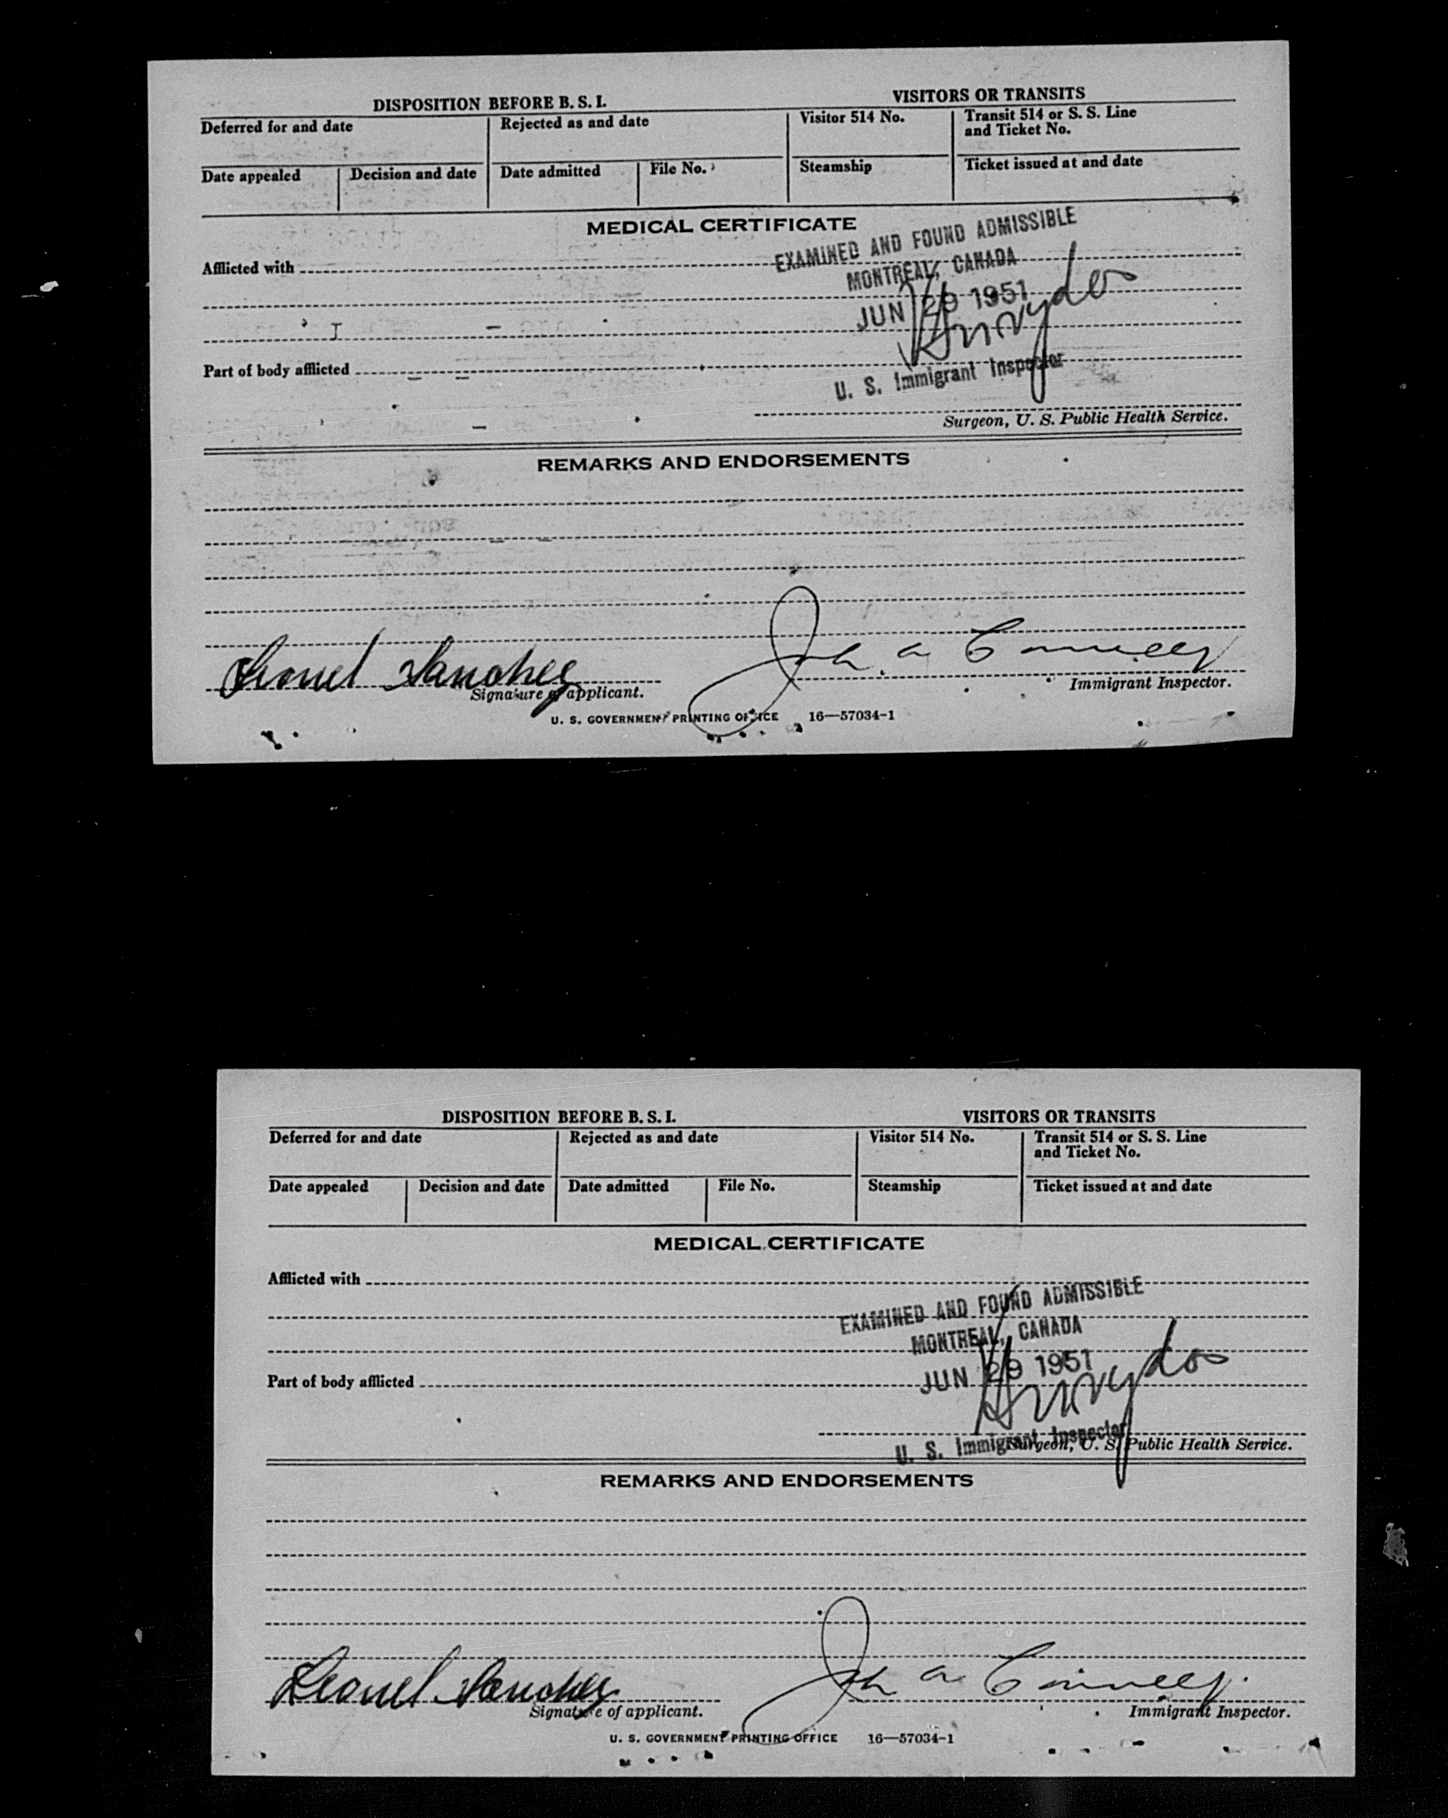 DISPOSITION BEFORE B. S. I.
VISITORS OR TRANSITS
Deferred for and date
Rejected as and date
Visitor 514 No.
Transit 514 or S. S. Line
and Ticket No.
Date appealed
Decision and date
Date admitted
File No.
Steamship
Ticket issued at and date
MEDICAL CERTIFICATE
EXAMINED AND FOUND ADMISSIBLE
Afflicted with
MONTREAL, CANADA
JUN 29 1951
Part of body afflicted
U. S. Immigrant Inspector
Surgeon, U. S. Public Health Service.
REMARKS AND ENDORSEMENTS
Leonel Sanchez
John A Connelly
Signature of applicant.
Immigrant Inspector.
U. S. GOVERNMENT PRINTING OFFICE 16—57034-1
DISPOSITION BEFORE B. S. I.
VISITORS OR TRANSITS
Deferred for and date
Rejected as and date
Visitor 514 No.
Transit 514 or S. S. Line
and Ticket No.
Date appealed
Decision and date
Date admitted
File No.
Steamship
Ticket issued at and date
MEDICAL CERTIFICATE
Afflicted with
EXAMINED AND FOUND ADMISSIBLE
MONTREAL, CANADA
JUN 29 1951
Part of body afflicted
U. S. Immigrant Inspector
Surgeon, U. S. Public Health Service.
REMARKS AND ENDORSEMENTS
Leonel Sanchez
John A Connelly
Signature of applicant.
Immigrant Inspector.
U. S. GOVERNMENT PRINTING OFFICE 16—57034-1